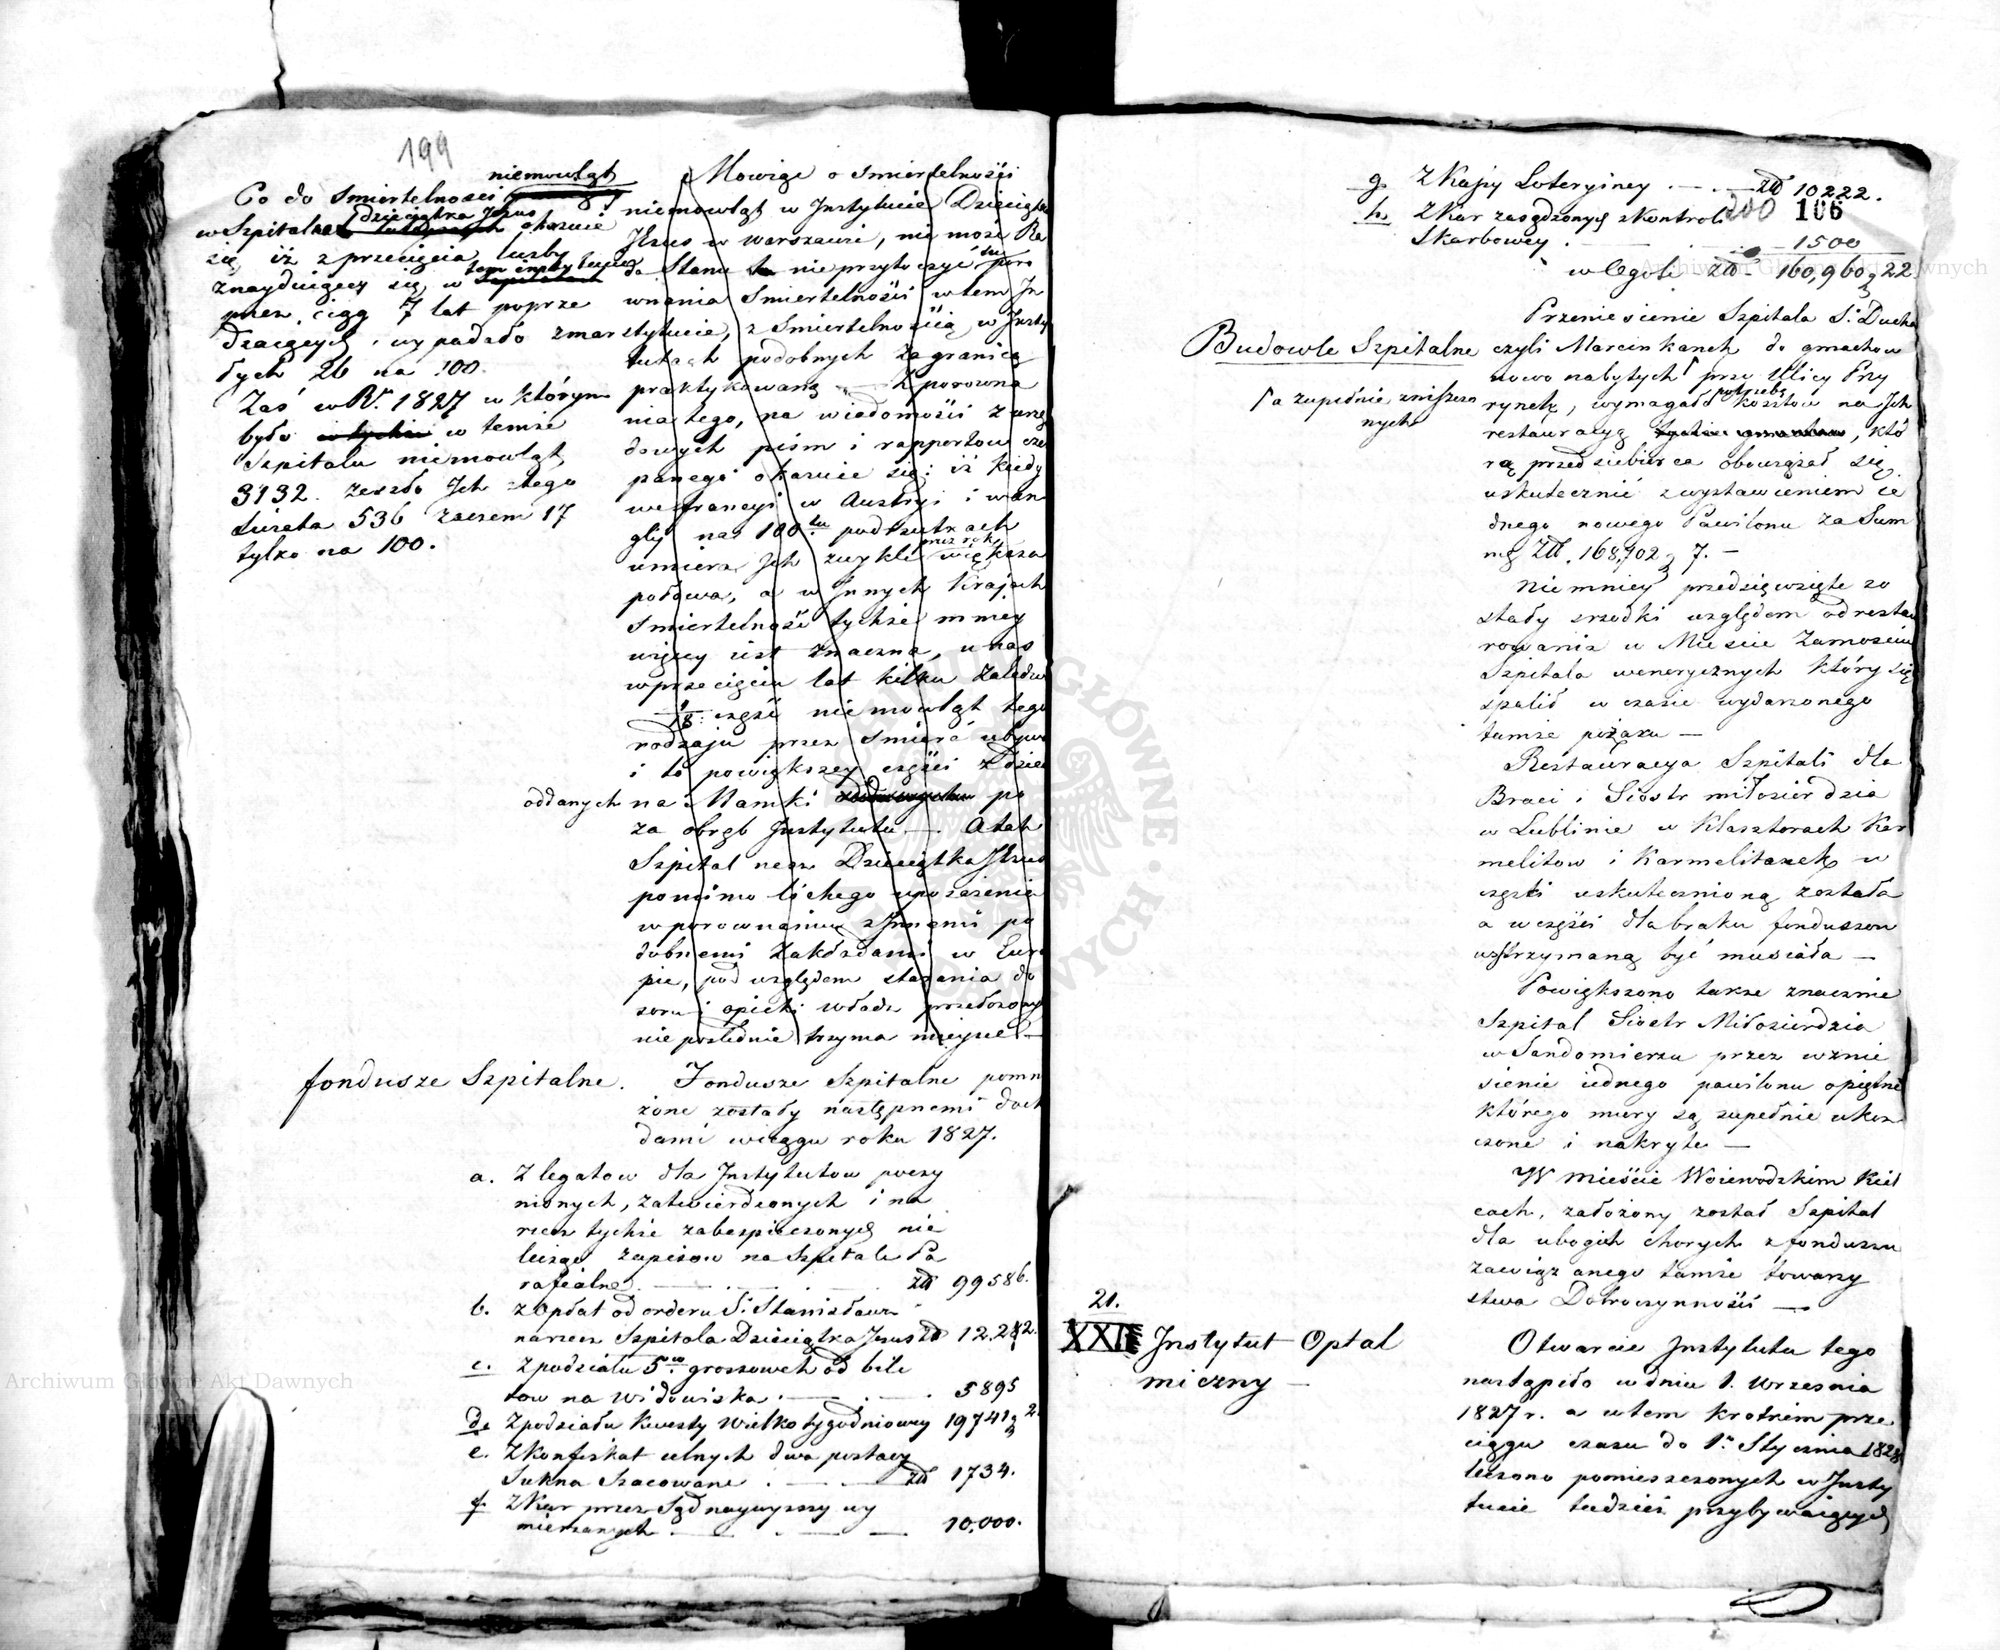 199
niemowląt
Co do Smiertelności
w Szpitalu Dzieciątka Jezus okazuie
się, iż z przecięcia liczby
tem instytucie
znayduiących się w Szpitalach
przez ciąg 7 lat poprze
dzaiących, wypadało zmar
łych 26 na 100.
Zaś w R. 1827 w którym
było w tychże w temże
Szpitalu niemowląt
3132. zeszło Ich z tego
świata 536 zaczem 17
tylko na 100.
Mowiąc o smiertelności
niemowląt w Instytucie Dzieciątka
Jezus w Warszawie, nie może Ra
da Stanu nie przytoczyć tu poró
wnania Smiertelności w tem In
stytucie, z Smiertelnością w Insty
tutach podobnych zagranicą
praktykowaną — Z porowna
nia tego, na wiadomości z urzę
dowych pism i rapportow czer
panego okazuie się: iż kiedy
we francyi w Austryi i w An
glij na 100 podrzutkach
przez rok
umiera Ich zwykle większa
połowa, a w Innych Krajach
Smiertelność tychże mniey
więcey iest znaczna, u nas
w przecięciu lat kilku zaledwie
1/18 część niemowląt tego
rodzaju przez Śmierć ubywa
i to powiększey części z Dzieci
oddanych na Mamki po
za obręb Instytutu — Atak
Szpital nasz Dzieciątka Jezus
pomimo lichego uposażenia
w porownaniu z Innemi po
dobnemi Zakładami w Euro
pie, pod względem starania do
zoru i opieki Władz przełożonych
nie poslednie trzyma mieysce —
fondusze Szpitalne. Fondusze Szpitalne pomno
żone zostały następnemi docho
dami w ciągu roku 1827.
a. Z legatow dla Instytutow poczy
nionych, zatwierdzonych i na
rzecz tychże zabespieczonych nie
licząc zapisow na Szpitale Pa
rafialne zł 99586.
b. z Opłat od orderu S. Stanisława
na rzecz Szpitala Dzieciątka Jezus zł 12.282.
c. z podziału 5cio groszowek od bile
tow na widowiska 5895
d. Z podziału kwesty Wielko tygodniowey 19741 g 2.
e. Z konfiskat celnych dwa postawy
Sukna szacowane zł 1734.
f. Z kar przez Sąd naywyższy wy
mierzanych 10.000.
g. Z Kassy Loteryiney zł 10222.
h. Z kar zasądzonych z kontrol
200 106
Skarbowey 1500
w Ogole zł 160,960 g 22
Budowle Szpitalne
Przeniesienie Szpitala S. Ducha
czyli Marcinkanek do gmachow
nowo nabytych przy Ulicy Przy
Γ a zupełnie zniszczo
nych
rynek, wymagało potrzebę kosztow na Ich
restauracyą, któ
rą przedsiębierca obowiązał się
uskutecznić z wystawieniem ie
dnego nowego Pawilonu za Sum
mę Zł. 168,702 g 7. —
Niemniey przedsięwzięte zo
stały srzodki względem odrestau
rowania w Miescie Zamosciu
Szpitala wenerycznych który się
spalił w czasie wydarzonego
tamże pożaru —
Restauracya Szpitali dla
Braci i Siostr miłosierdzia
w Lublinie w Klasztorach Kar
melitow i Karmelitanek w
części uskutecznioną została
a w części dla braku funduszow
wstrzymaną być musiała —
Powiększono także znacznie
Szpital Siostr Miłosierdzia
w Sandomierzu przez wznie
sienie iednego pawilonu o piętrze
którego mury są zupełnie ukoń
czone i nakryte —
W mieście Woiewodzkim Kiel
cach, założony został Szpital
dla ubogich chorych z funduszu
zawiązanego tamże towarzy
stwa Dobroczynności —
21.
XXII Instytut Optal
miczny —
Otwarcie Instytutu tego
nastąpiło w dniu 1. Wrzesnia
1827 r. a w tem krotkiem prze
ciągu czasu do 1. Stycznia 1828
liczono pomieszczonych w Insty
tucie tudzież przybywaiących
Archiwum Główne Akt Dawnych